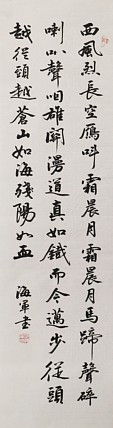 西風烈長空雁叫霜晨月霜晨月馬蹄聲碎
喇叭聲咽雄關漫道真如鐵而今邁步從頭
越從頭越蒼山如海殘陽如血
海軍書